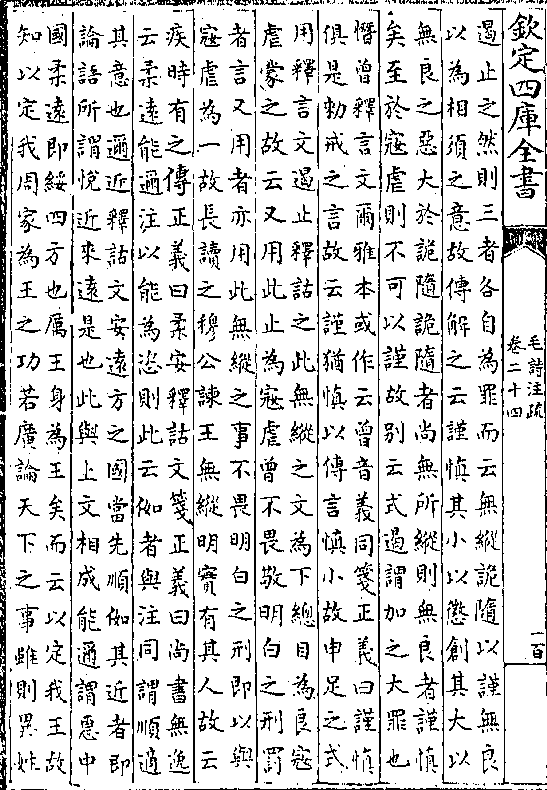 欽定四庫全書
毛詩注疏
卷二十四
一百
遏止之然則三者各自為罪而云無縱詭隨以謹無良
以為相須之意故傳解之云謹慎其小以懲創其大以
無良之惡大於詭隨詭隨者尚無所縱則無良者謹慎
矣至於寇虐則不可以謹故別云式遏謂加之大罪也
憯曾釋言文爾雅本或作云曾音義同箋正義曰謹慎
俱是勅戒之言故云謹猶慎以傳言慎小故申足之式
用釋言文遏止釋詁文此無縱之文為下總目為良寇
虐蒙之故云又用此止為寇虐曾不畏敬明白之刑罰
者言又用者亦用此無縱之事不畏明白之刑即以與
寇虐為一故長讀之穆公諫王無縱明實有其人故云
疾時有之傳正義曰柔安釋詁文箋正義曰尚書無逸
云柔遠能邇注以能為恣則此云伽者與注同謂順適
其意也邇近釋詁文安遠方之國當先順伽其近者即
論語所謂悅近來遠是也此與上文相成能邇謂惠中
國柔遠即綏四方也厲王身為王矣而云以定我王故
知以定我周家為王之功若廣論天下之事雖則異姓